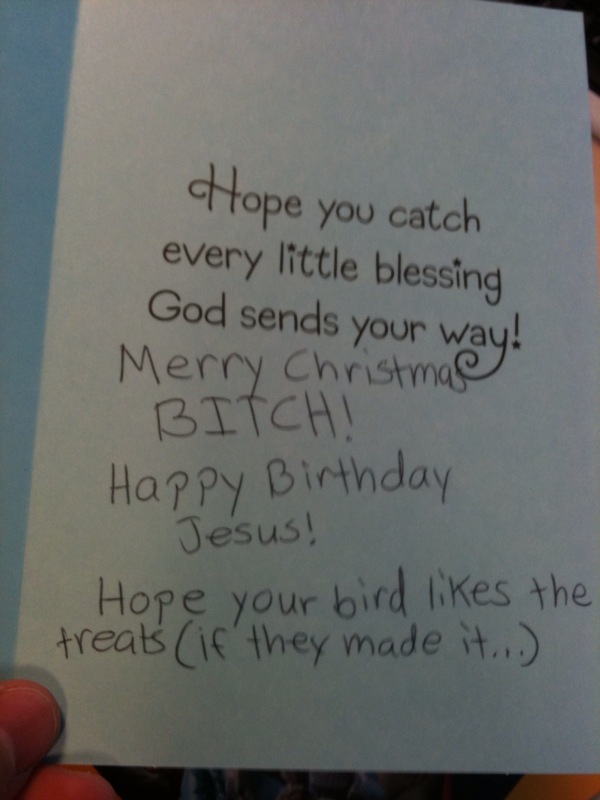 Hope you catch
every little blessing
God sends your way!
Merry Christmas
BITCH!
Happy Birthday
Jesus!
Hope your bird likes the
treats (if they made it...)